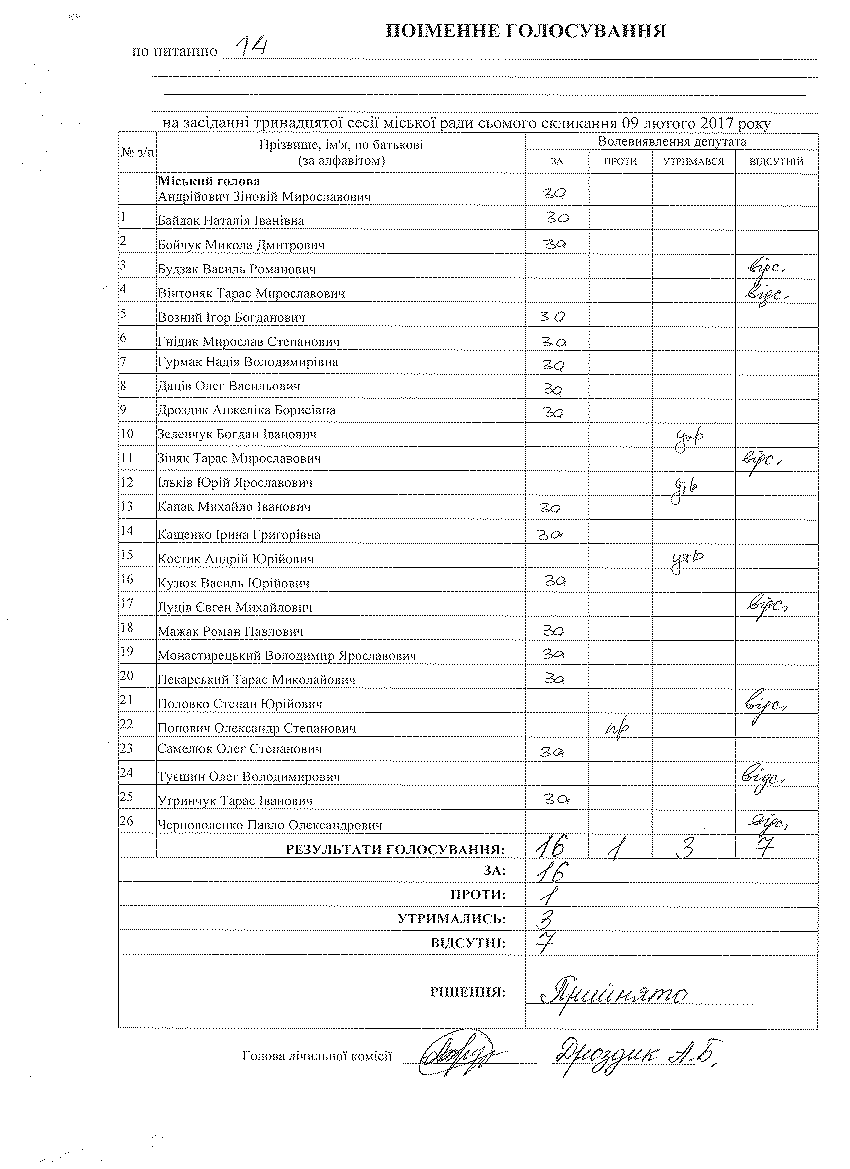 ПОІМЕННЕ ГОЛОСУВАННЯ
по питанню 14
на засіданні тринадцятої сесії міської ради сьомого скликання 09 лютого 2017 року
№ з/п Прізвище, ім'я, по батькові (за алфавітом) Волевиявлення депутата
ЗА ПРОТИ УТРИМАВСЯ ВІДСУТНІЙ
Міський голова
Андрійович Зіновій Мирославович за
1 Байдак Наталія Іванівна за
2 Бойчук Микола Дмитрович за
3 Будзак Василь Романович відс.
4 Вінтоняк Тарас Мирославович відс.
5 Возний Ігор Богданович за
6 Гнідик Мирослав Степанович за
7 Гурмак Надія Володимирівна за
8 Даців Олег Васильович за
9 Дроздик Анжеліка Борисівна за
10 Зеленчук Богдан Іванович утр
11 Зіняк Тарас Мирославович відс.
12 Ільків Юрій Ярославович утр
13 Капак Михайло Іванович за
14 Кащенко Ірина Григорівна за
15 Костик Андрій Юрійович утр
16 Кулюк Василь Юрійович за
17 Луців Євген Михайлович відс.
18 Мажак Роман Павлович за
19 Монастирецький Володимир Ярославович за
20 Пекарський Тарас Миколайович за
21 Половко Степан Юрійович відс.
22 Попович Олександр Степанович пр
23 Самелюк Олег Степанович за
24 Туєшин Олег Володимирович відс.
25 Угринчук Тарас Іванович за
26 Черноволенко Павло Олександрович відс.
РЕЗУЛЬТАТИ ГОЛОСУВАННЯ: 16 1 3 7
ЗА: 16
ПРОТИ: 1
УТРИМАЛИСЬ: 3
ВІДСУТНІ: 7
РІШЕННЯ: Прийнято
Голова лічильної комісії Дроздик А.Б.